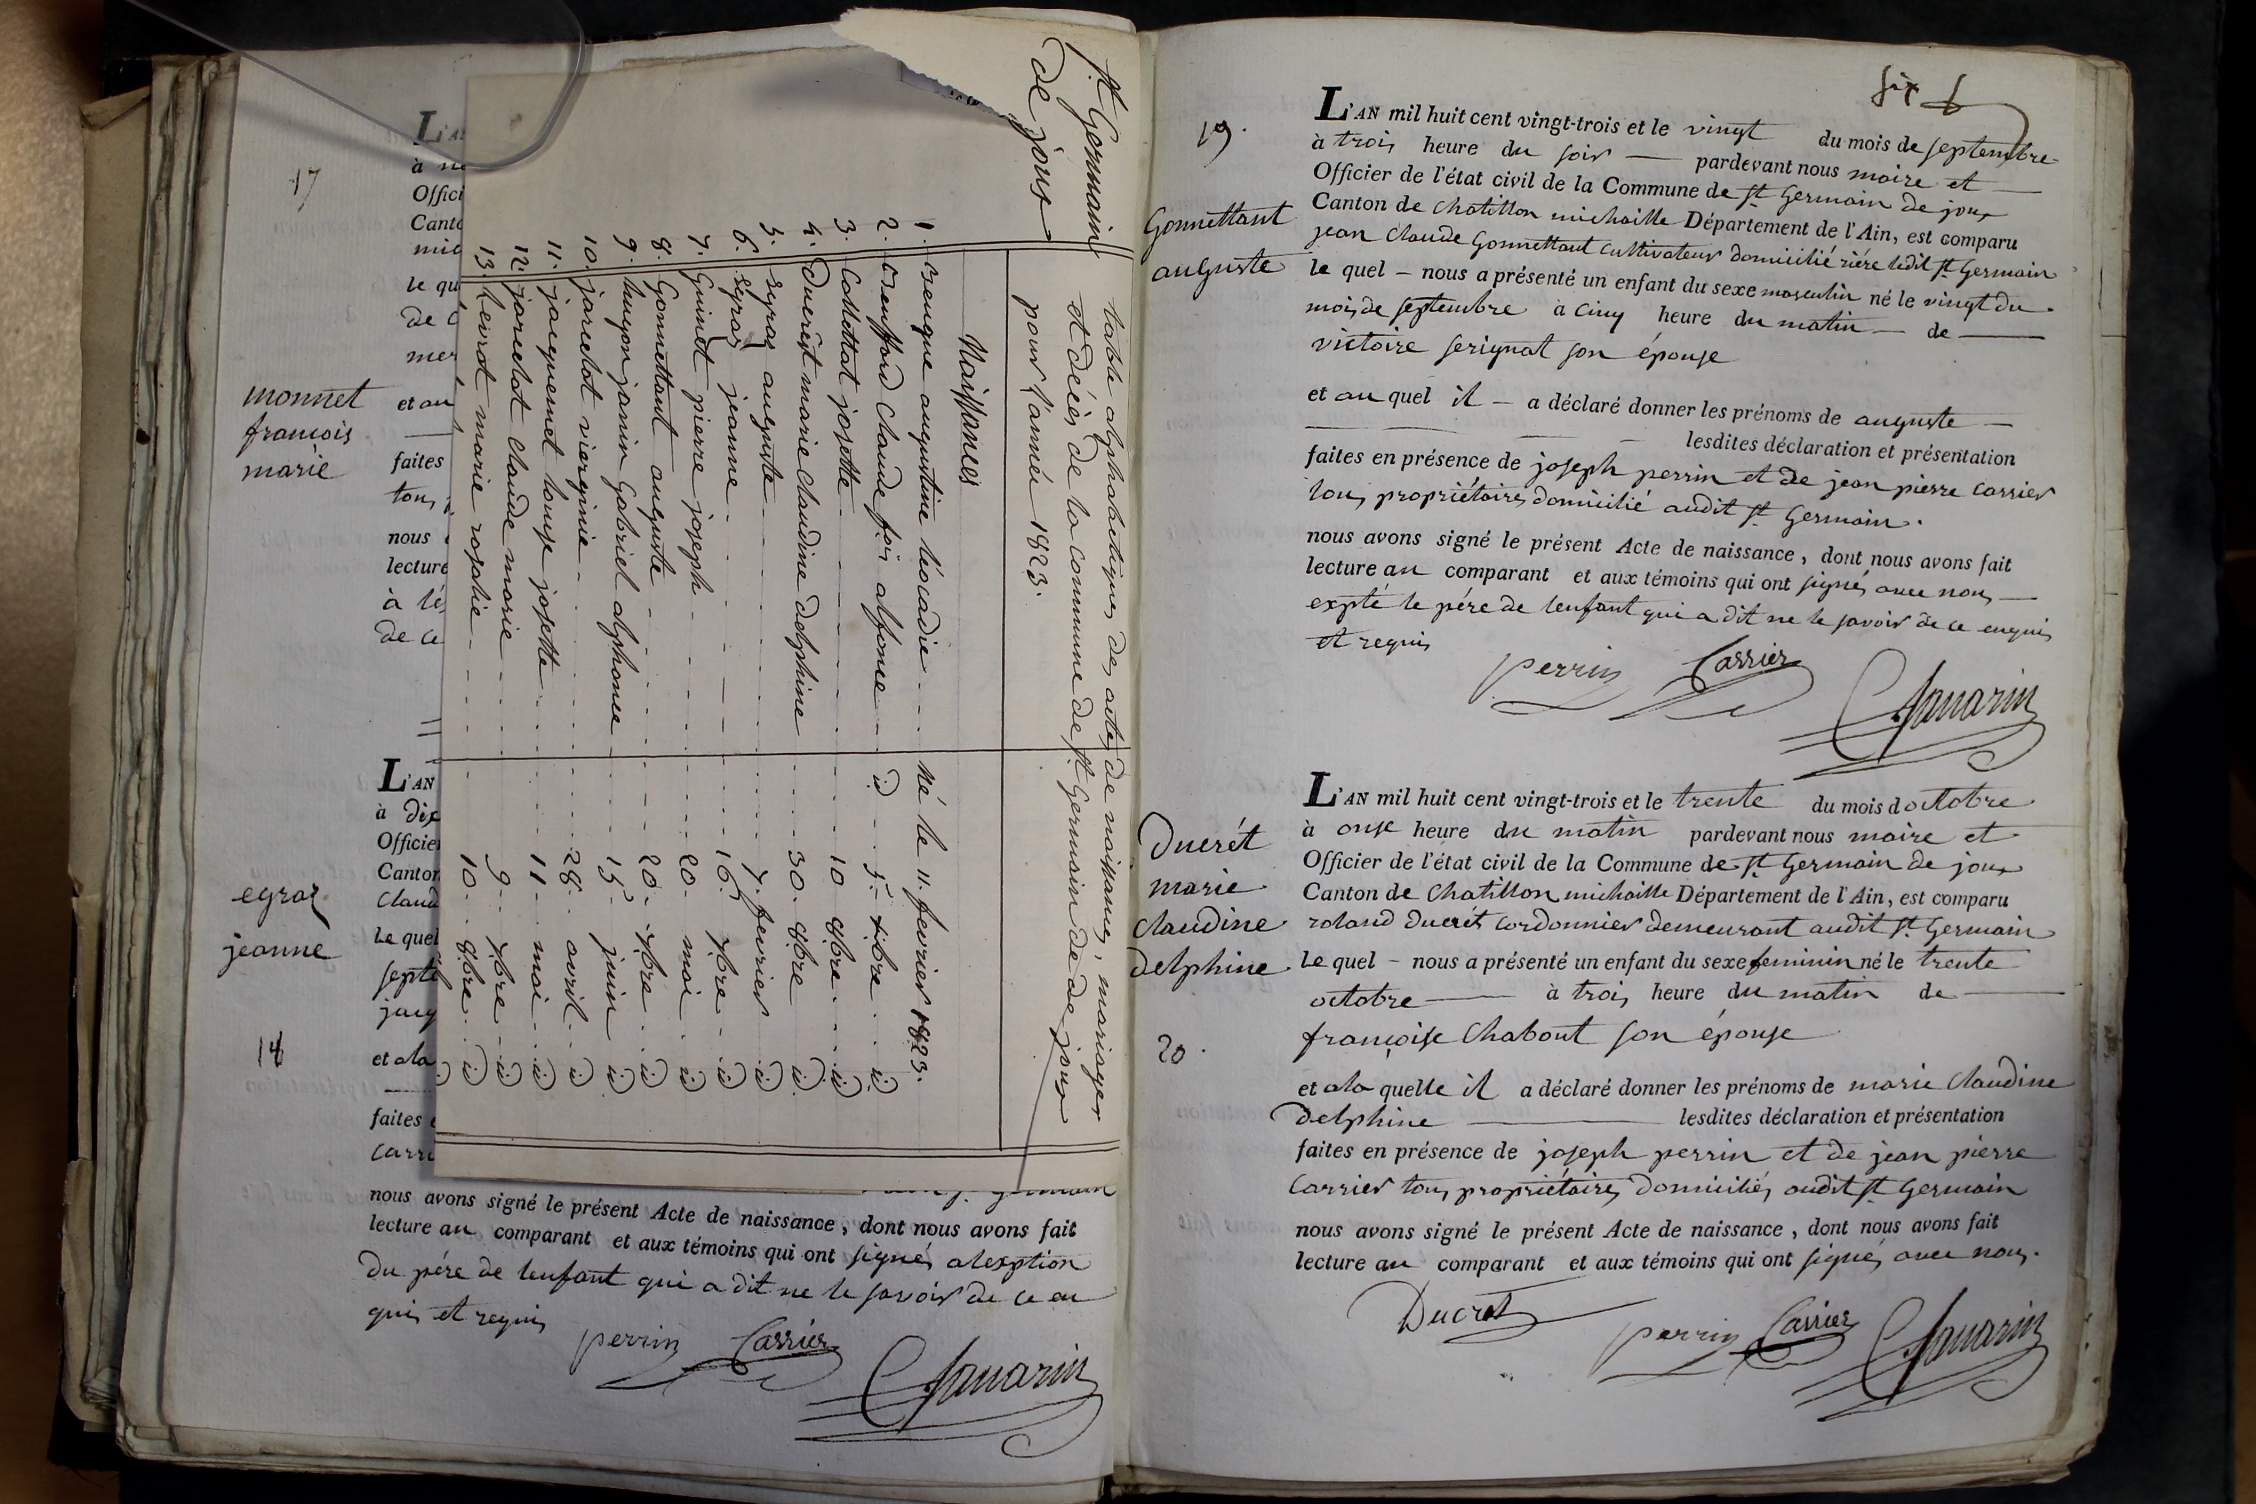 17
monnet
françois
marie
L'A
à
Offici
Canto
le qu
de
mer
et au
faites
tous
nous
lecture
de ce
egraz
jeanne
18
L'AN
à dix
Officier
Canton
Claud
le quel
septe
jacq
et ala
faites
Carri
nous avons signé le présent Acte de naissance, dont nous avons fait
lecture au comparant et aux témoins qui ont signés alexption
du pére de lenfant qui a dit ne le savoir de ce en
quis et requis
perrin Carrier Savarin
St Germain
de joux
table alphabetiques des actes de naissances, mariages
et décès de la commune de St Germain de de joux
pour l'année 1823.
Naissances
1. augustine léocadie né le 11. fevrier 1823.
2. claude foi alfonse id 5. id
3. Collettat josette 10 9bre id
4. Ducrêt marie claudine delphine 30. 8bre id
5. Egraz auguste 7. fevrier id
6. Egraz jeanne 16. 7bre id
7. Guinet pierre joseph 20. mai id
8. Gonnettant auguste 20. 7bre id
9. hugon janin Gabriel alphonse 15. juin id
10. jarcelot vierginie 28. avril id
11. jacquemet louise josette 11. mai id
12. jarcelot claude marie 9. 7bre id
13. marie rosalie 10. 9bre id
six 6
19.
Gonnettant
auguste
L'AN mil huit cent vingt-trois et le vingt du mois de septembre
à trois heure du soir — pardevant nous maire et —
Officier de l'état civil de la Commune de St Germain de joux
Canton de Chatillon michaille Département de l'Ain, est comparu
jean Claude Gonnettant cultivateur domicilié riére ledit St Germain
le quel – nous a présenté un enfant du sexe masculin né le vingt du
mois de septembre à cinq heure du matin — de —
victoire serignat son épouse
et au quel il – a déclaré donner les prénoms de auguste —
lesdites déclaration et présentation
faites en présence de joseph perrin et de jean pierre carrier
tous propriétaires domicilié audit St Germain.
nous avons signé le présent Acte de naissance, dont nous avons fait
lecture au comparant et aux témoins qui ont signés avec nous —
expté le pére de lenfant qui a dit ne le savoir de ce enquis
et requis
perrin Carrier Savarin
Ducrét
marie
claudine
delphine
20.
L'AN mil huit cent vingt-trois et le trente du mois doctobre
à onse heure du matin pardevant nous maire et
Officier de l'état civil de la Commune de St Germain de joux
Canton de Chatillon michaille Département de l'Ain, est comparu
roland ducrét cordonnier demeurant audit St Germain
le quel – nous a présenté un enfant du sexe feminin né le trente
octobre — à trois heure du matin de —
françoise Chabout son épouse
et ala quelle il a déclaré donner les prénoms de marie claudine
delphine — lesdites déclaration et présentation
faites en présence de joseph perrin et de jean pierre
Carrier tous propriétaires domiciliés audit St Germain
nous avons signé le présent Acte de naissance, dont nous avons fait
lecture au comparant et aux témoins qui ont signés avec nous.
Ducret perrin Carrier Savarin